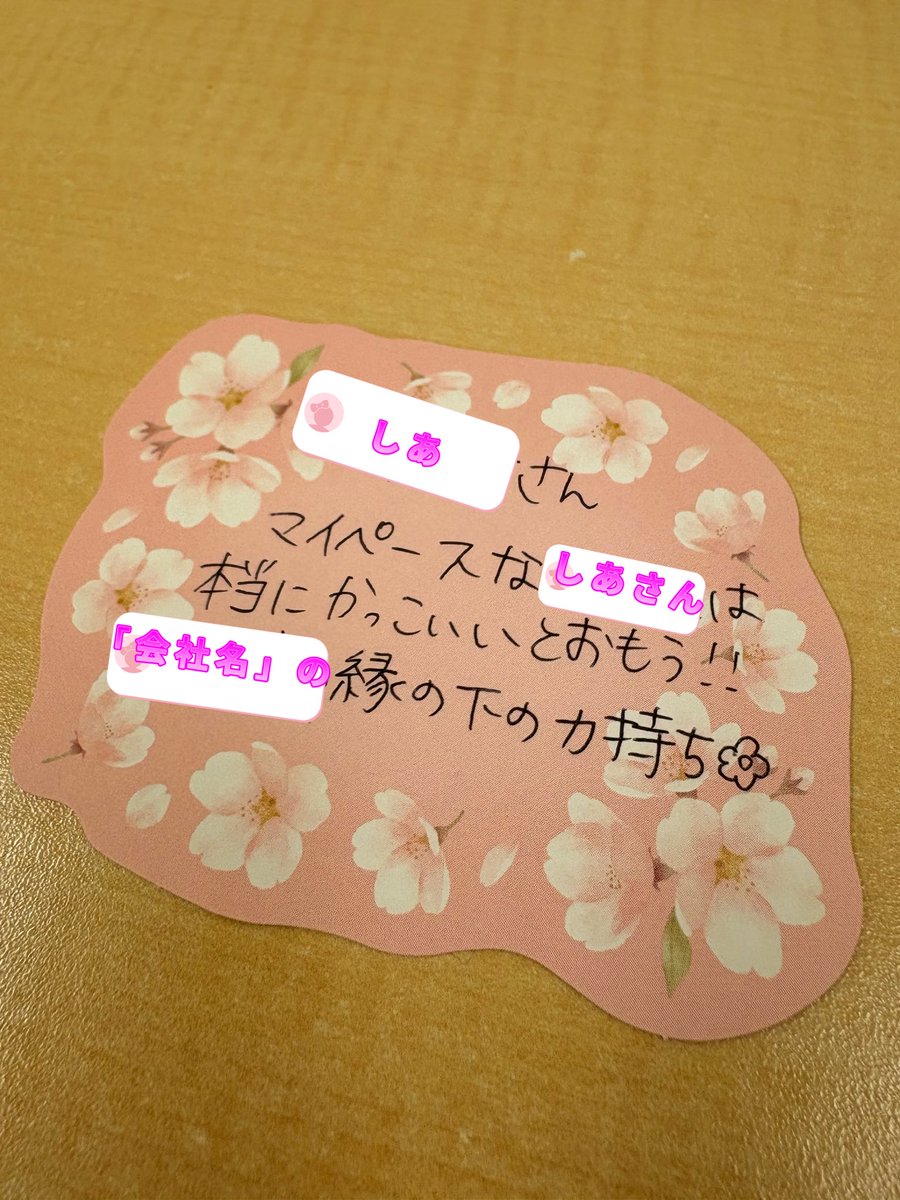 しあさん
マイペースなしあさんは
本当にかっこいいとおもう!!
「会社名」の縁の下の力持ち